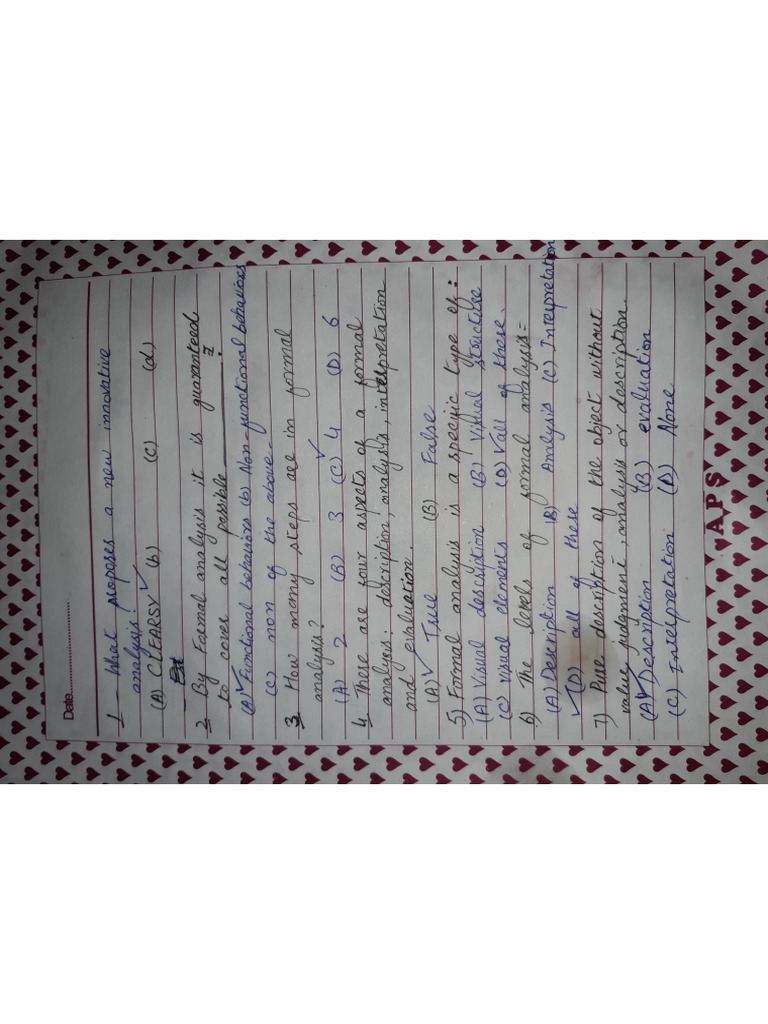 Date..............................
1 - What proposes a new innovative
analysis?
(A) CLEARSY ✓ b) (C) (d)
2 By Formal analysis it is guaranteed
to cover all possible ________ .
(A)✓ Functional behaviors (b) Non-functional behaviors
(C) non of the above.
3 How many steps are in formal
analysis?
(A) 2 (B) 3 (C) 4 ✓ (D) 6
4 There are four aspects of a formal
analysis: description, analysis, interpretation
and evaluation.
(A) ✓ True (B) False
5) Formal analysis is a specific type of:
(A) Visual description (B) Visual structive
(C) visual elements (D) ✓ all of these.
6) The levels of formal analysis:
(A) Description (B) Analysis (C) Interpretation
✓ (D) all of these
7) Pure description of the object without
value judgment, analysis or description.
(A) ✓ Description (B) evaluation
(C) Interpretation (D) None
APS